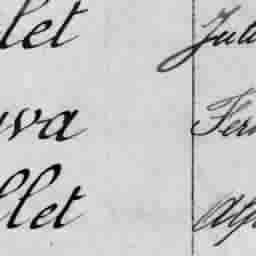 let Juli
uva Fer
llet Alf